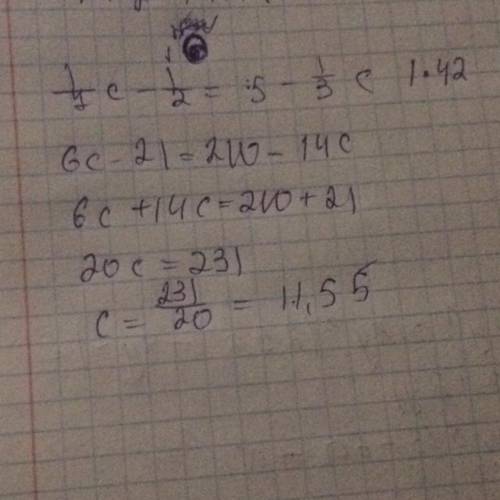 1/7 c - 1/2 = 5 - 1/3 c | · 42
6c - 21 = 210 - 14c
6c + 14c = 210 + 21
20c = 231
c = 231/20 = 11,55